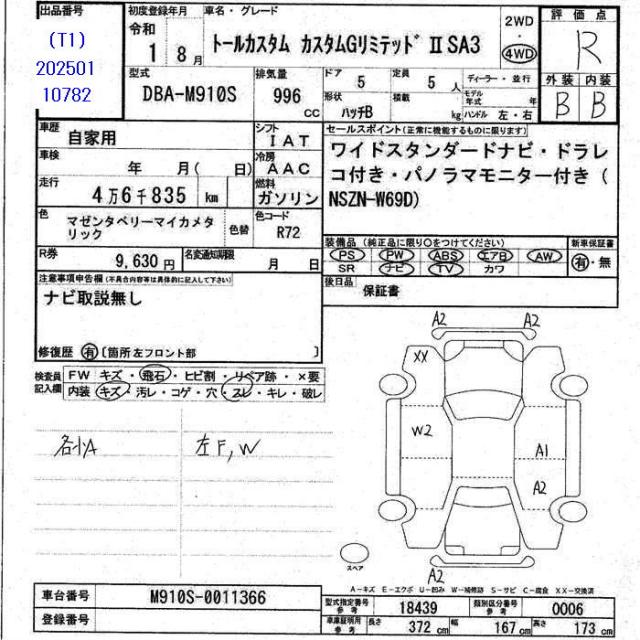 出品番号
(T1)
202501
10782
初度登録年月
令和
1 8月
車名・グレード
トールカスタム カスタムGリミテッド Ⅱ SA3
2WD
・
4WD
評価点
R
外装 内装
B B
型式
DBA-M910S
排気量
996
CC
ドア 5
定員 5人
形状 ハッチB
積載 kg
ディーラー・並行
モデル年式 年
ハンドル 左・右
車歴
自家用
シフト
IAT
車検
年 月( 日)
冷房
AAC
走行
4万6千835 km
燃料
ガソリン
色
マゼンタベリーマイカメタリック
色替
色コード
R72
R券
9,630円
名変通知期限
月 日
セールスポイント(正常に機能するものに限ります)
ワイドスタンダードナビ・ドラレ
コ付き・パノラマモニター付き(
NSZN-W69D)
装備品(純正品に限り○をつけてください)
PS PW ABS エアB AW
SR ナビ TV カワ
新車保証書
有・無
後日品
保証書
注意事項申告欄(不具合内容等は具体的に記入して下さい)
ナビ取説無し
修復歴 有 〔箇所 左フロント部 〕
検査員記入欄
FW キズ・飛石・ヒビ割・リペア跡・×要
内装 キズ・汚レ・コゲ・穴・スレ・キレ・破レ
各小A
左F,W
A2 A2
XX
W2
A1
A2
A2
スペア
A-キズ E-エクボ U-凹み W-補修跡 S-サビ C-腐食 XX-交換済
車台番号
M910S-0011366
登録番号
型式指定番号
参考
18439
類別区分番号
参考
0006
車庫証明用
参考
長さ 372 cm
幅 167 cm
高さ 173 cm